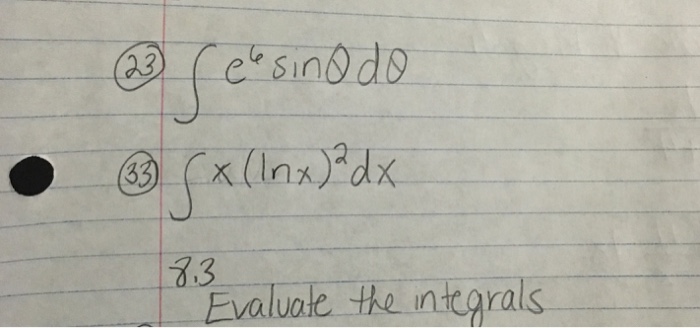 (23) ∫ e⁶ sinθ dθ
(33) ∫ x (lnx)² dx
8.3
Evaluate the integrals